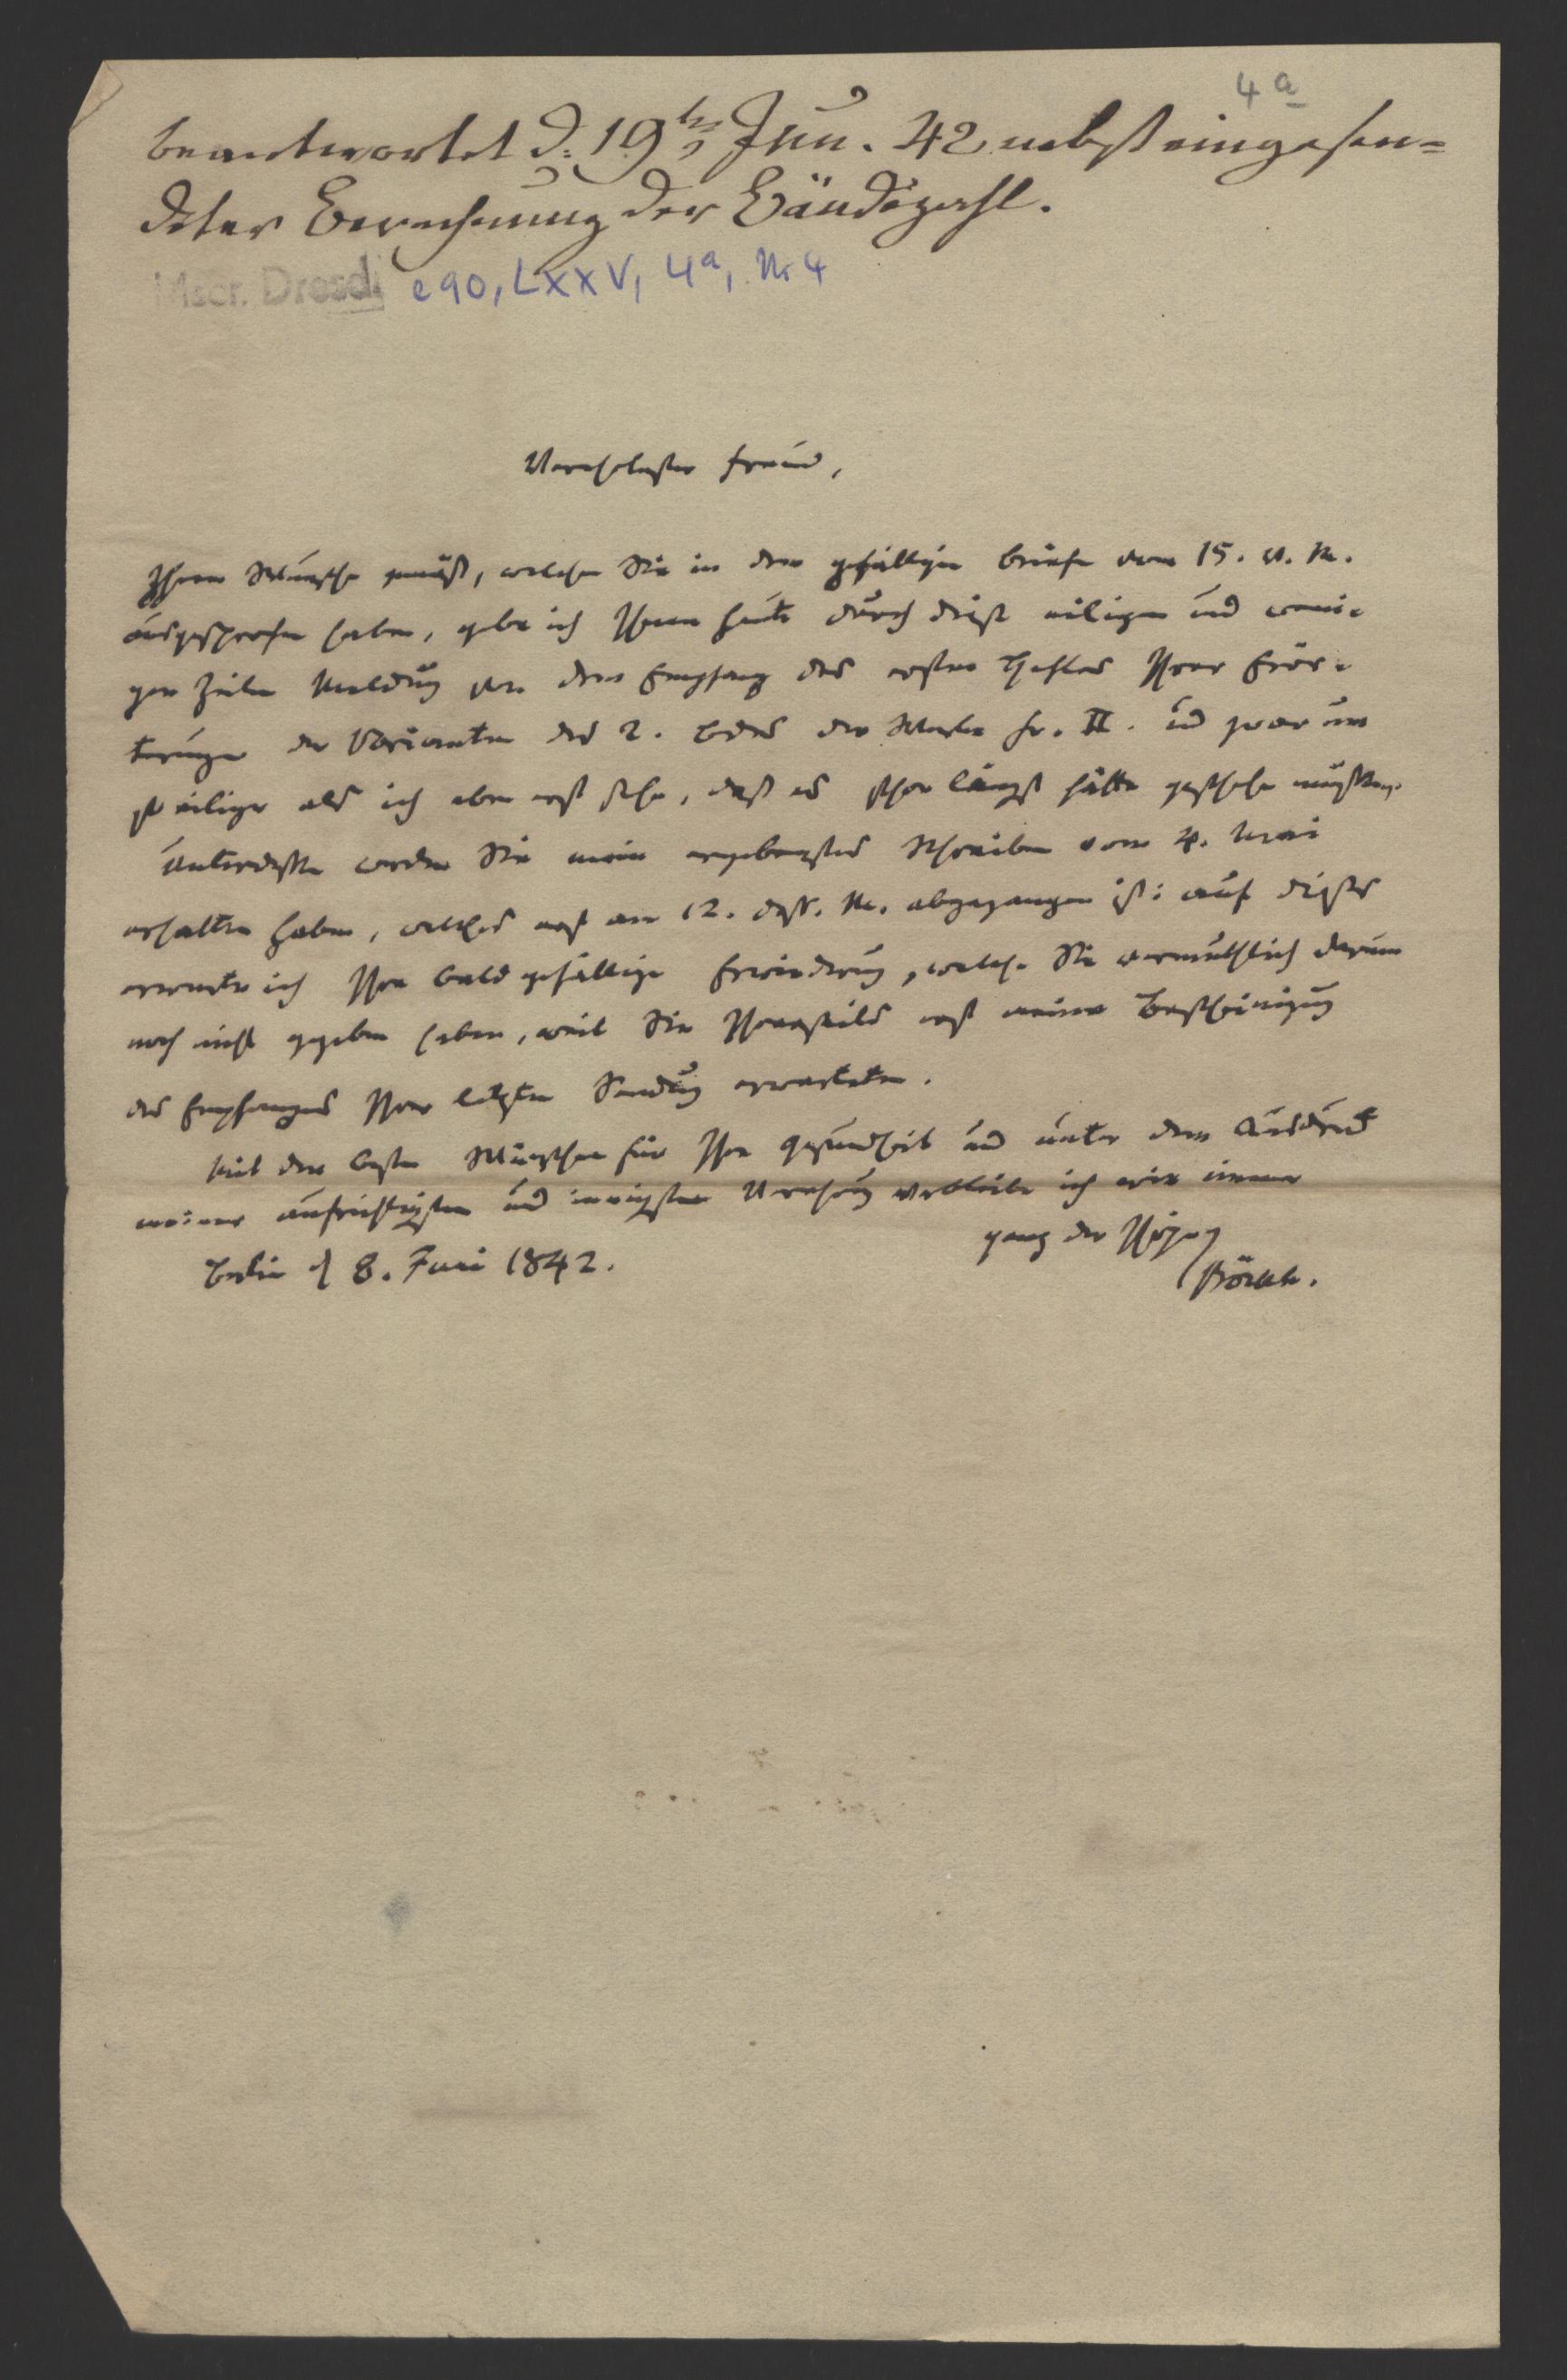 4a
beantwortet d. 19ten Jun. 42 nebst eingesen=
deter Berechnung der Bändezahl.
Mscr. Dresd. e 90, LXXV, 4a, Nr 4
Verehrtester Freund,
Ihrem Wunsche gemäß, welchen Sie in dem gefälligen Briefe vom 15. v. M.
ausgesprochen haben, gebe ich Ihnen heute durch diese eiligen und weni-
gen Zeilen Meldung von dem Empfang des ersten Theiles Ihrer Erör-
terungen der Varianten des 2. Bdes der Werke Fr. II. und zwar um
so eiliger als ich eben erst sehe, daß es schon längst hätte geschehen müssen.
Unterdessen werden Sie mein ergebenstes Schreiben vom 4. Mai
erhalten haben, welches erst am 12. dess. M. abgegangen ist: auf dieses
erwarte ich Ihre bald gefällige Erwiederung, welche Sie vermuthlich darum
noch nicht gegeben haben, weil Sie Ihrerseits erst meine Bescheinigung
des Empfanges Ihrer letzten Sendung erwarteten.
Mit den besten Wünschen für Ihre Gesundheit und unter dem Ausdruck
meiner aufrichtigsten und innigsten Verehrung verbleibe ich wie immer
ganz der Ihrige
Berlin d 8. Juni 1842.
Böckh.